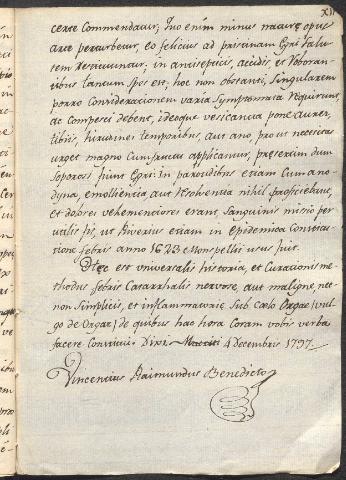 XII
certe commendatur, quo enim minus naturæ opus
arte perturbetur, eo felicius ad pristinam Egri salu-
tem restituunur, in antisepticis, acidis, et roboran-
tibus tantum spes est, hoc non obstanti, singularem
porro considerationem varia symptomata requirunt,
ac compesci debent, ideoque vesicantia pone aures,
tibiis, hirudines temporibus, aut ano, prout necesitas
urget magno cum fructu applicantur, presertim dum
soporosi fiunt Egri: in parotidibus etiam cum ano-
dyna, emollientia, aut resolventia nihil proficiebant,
et dolores vehementiores erant, sanguinis misio per
utilis fit, ut Riverius etiam in epidemica constitu-
tione febris anno 1623 Monspellii usus fuit.
Hæc est universalis historia, et curationis me-
thodus febris catarrhalis nervosæ, aut malignæ, nec
non simplicis, et inflammatoriæ sub cælo Orgaz (vul-
go de Orgaz) de quibus hac hora coram vobis verba
facere constitui. Dixi. 4 Decembris 1797.
Vincentius Raimundus Benedicto